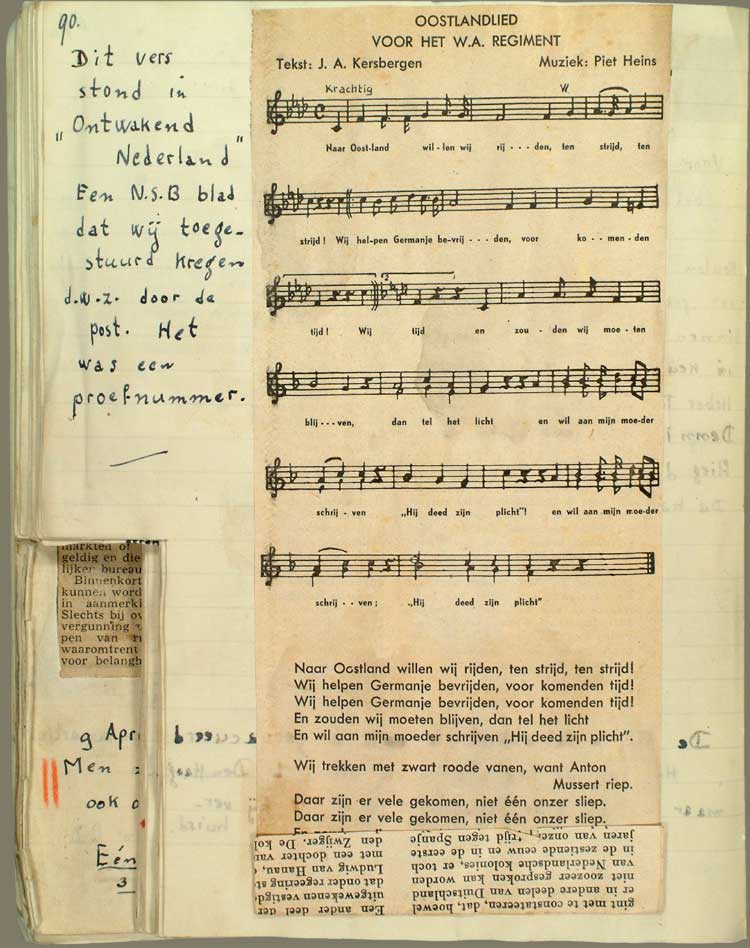 90.
Dit vers
stond in
„Ontwakend
Nederland"
Een N.S.B blad
dat wij toege-
stuurd kregen
d.w.z. door de
post. Het
was een
proefnummer.
OOSTLANDLIED
VOOR HET W.A. REGIMENT
Tekst: J. A. Kersbergen Muziek: Piet Heins
Krachtig
Naar Oost-land wil-len wij rij---den, ten strijd, ten
strijd! Wij hel-pen Germanje be-vrij---den, voor ko--men-den
tijd! Wij tijd en zou-den wij moe-ten
blij---ven, dan tel het licht en wil aan mijn moe-der
schrij-ven „Hij deed zijn plicht"! en wil aan mijn moe-der
schrij--ven; „Hij deed zijn plicht"
Naar Oostland willen wij rijden, ten strijd, ten strijd!
Wij helpen Germanje bevrijden, voor komenden tijd!
Wij helpen Germanje bevrijden, voor komenden tijd!
En zouden wij moeten blijven, dan tel het licht
En wil aan mijn moeder schrijven „Hij deed zijn plicht".
Wij trekken met zwart roode vanen, want Anton
Mussert riep.
Daar zijn er vele gekomen, niet één onzer sliep.
Daar zijn er vele gekomen, niet één onzer sliep.
markten of
geldig en die
lijker bureau
Binnenkort
kunnen word
in aanmerki
Slechts bij ov
vergunning
pen van
waaromtrent
voor belangh
9 Apr
Men
ook
Eén
3
gint met te constateeren, dat, hoewel
er in andere deelen van Duitschland
niet zoozeer gesproken kan worden
van Nederlandsche kolonies, er toch
in de zestiende eeuw en in de eerste
jaren van onzen strijd tegen Spanje
Een ander deel der
uitgewekenen vestigd
dat onder regeering st
Ludwig van Hanau,
met een dochter van
den Zwijger. De kol